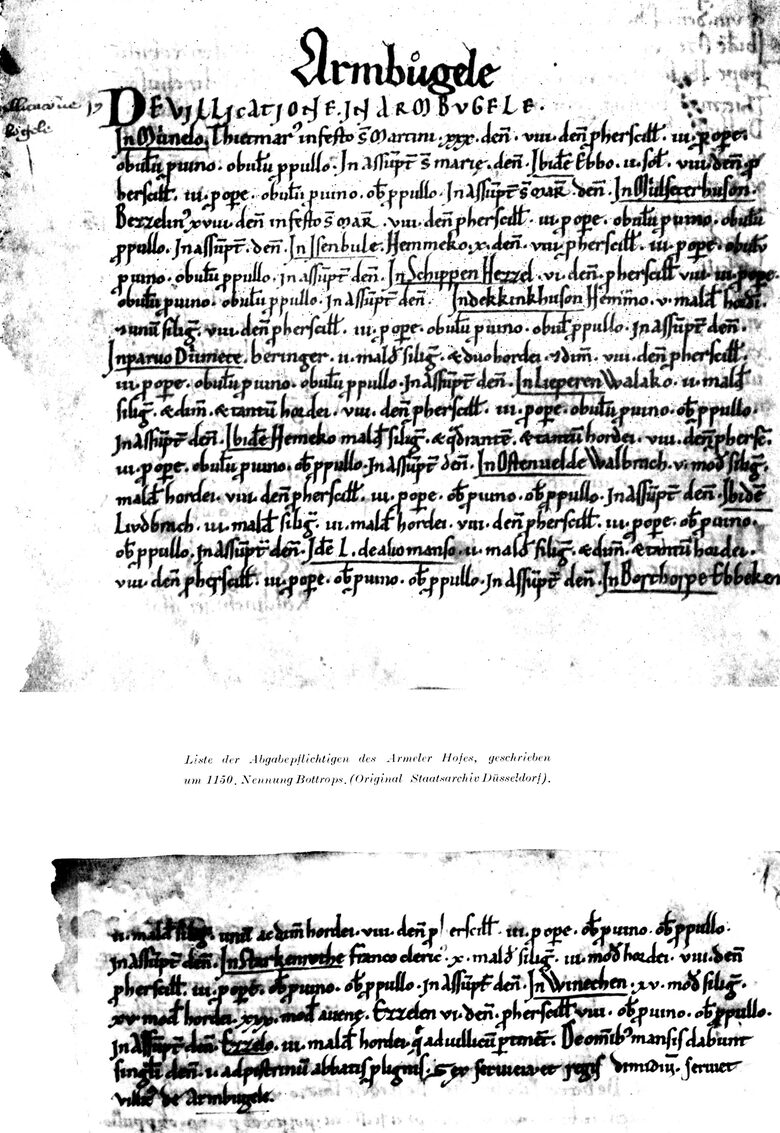 Armbůgele
DE VILLICATIONE IN ARMBVGELE.
bůgele
In Munelo. Thietmar' in festo s̄ Martini. xxx. den̄. viii. den̄ p herscilt̄. iii. p ope.
obulū p uino. obulū p pullo. In assūpt̄ s̄ marię. den̄. Ibidē Ebbo. ii. sol. viii. den̄ p
herscilt̄. iii. p ope. obulū p uino. ob̄ p pullo. In assūpt̄ s̄ mar̄. den̄. In
Bezzelin' xviii. den̄ in festo s̄ mar̄. viii. den̄ p herscilt̄. iii. p ope. obulū p uino. obulū
p pullo. In assūpt̄. den̄. In Isenbule. Hemmeko. x. den̄. viii. p herscilt̄. iii. p ope. obulū
p uino. obulū p pullo. in assūpt̄. den̄. In Schippen Hezzel. vi. den̄. p herscilt̄ viii. iii. p ope.
obulū p uino. obulū p pullo. In assūpt̄ den̄. In dekkinkhuson Hemmo. v. mald̄ hordi.
unū siliḡ. viii. den̄ p herscilt̄. iii. p ope. obulū p uino. obul̄ p pullo. In assūpt̄ den̄.
In paruo Dunete. beringer. ii. mald̄ siliḡ. & duo hordei. viii. den̄ p herscilt̄.
iii. p ope. obulū p uino. obulū p pullo. In assūpt̄ den̄. In Lieperen Walako. ii. mald̄
siliḡ. & dim̄. & tantū hordei. viii. den̄ p herscilt̄. iii. p ope. obulū p uino. ob̄ p pullo.
In assūpt̄ den̄. Ibidē Hemeko mald̄ siliḡ. & q̄drantē. & tantū hordei. viii. den̄ p hersc̄.
iii. p ope. obulū p uino. ob̄ p pullo. In assūpt̄ den̄. In Ostenuelde Walbrach. v. mod̄ siliḡ.
mald̄ hordei. viii. den̄ p herscilt̄. iii. p ope. ob̄ p uino. ob̄ p pullo. In assūpt̄ den̄. Ibidē
Liudbrach. iii. mald̄ siliḡ. iii. mald̄ hordei. viii. den̄ p herscilt̄. iii. p ope. ob̄ p uino.
ob̄ p pullo. In assūpt̄ den̄. Idē L. de alio manso. ii. mald̄ siliḡ. & dim̄. & tantū hordei.
viii. den̄ p herscilt̄. iii. p ope. ob̄ p uino. ob̄ p pullo. In assūpt̄ den̄. In Borthorpe Ebbeken
Liste der Abgabepflichtigen des Armeler Hofes, geschrieben
um 1150. Nennung Bottrops. (Original Staatsarchiv Düsseldorf).
ii. mald̄ siliḡ. unū ac dim̄ hordei. viii. den̄ p herscilt̄. iii. p ope. ob̄ p uino. ob̄ p pullo.
In assūpt̄ den̄. In Starkenrothe franco cleric'. x. mald̄ siliḡ. iii. mod̄ hordei. viii. den̄
p herscilt̄. iii. p ope. ob̄ p uino. ob̄ p pullo. In assūpt̄ den̄. In Winechen. xv. mod̄ siliḡ.
xv. mod̄ hordei. xxx. mod̄ auenę. Ezzelen vi. den̄. p herscilt̄ viii. ob̄ p uino. ob̄ p pullo.
In assūpt̄ den̄. Ezzelo. iii. mald̄ hordei q̄ ad uillicū ptinet̄. De omib' mansis dabunt
singlī den̄. ii. ad pistrinū abbatis p lignis. & regis dimidiū. seruet
de Armbugele.